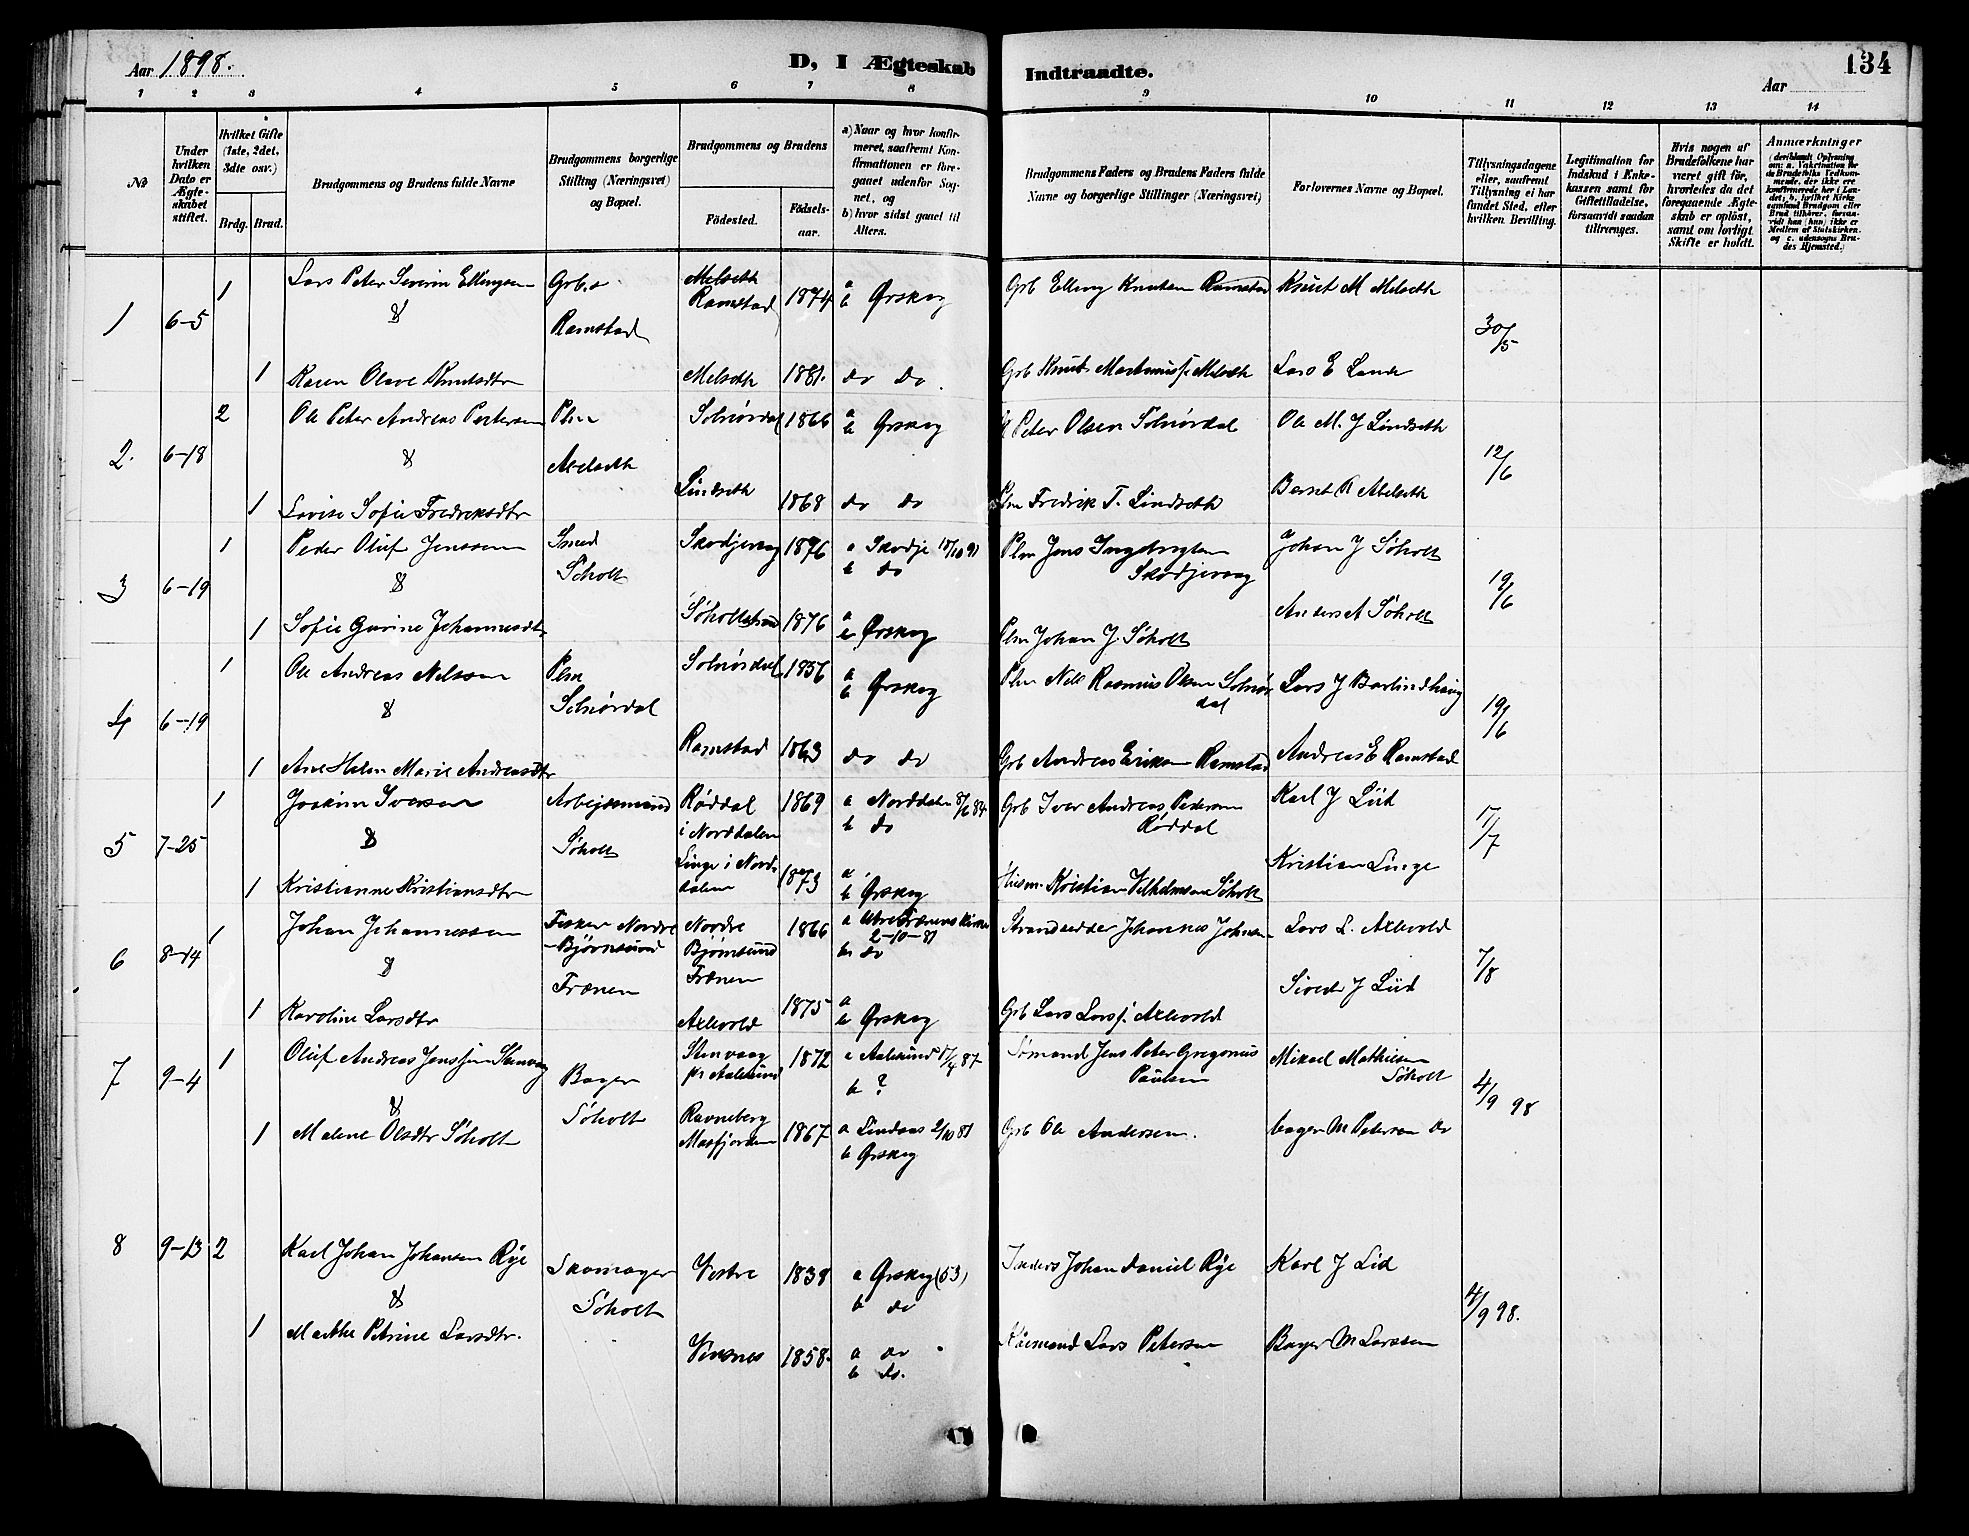 Aar 1898.
D, I Ægteskab
Indtraadte.
134
Aar
1 2 3 4 5 6 7 8 9 10 11 12 13 14
№
Under hvilken Dato er Ægteskabet stiftet.
Hvilket Gifte (1ste, 2det, 3dte osv.)
Brdg. Brud.
Brudgommens og Brudens fulde Navne
Brudgommens borgerlige Stilling (Næringsvei) og Bopæl.
Brudgommens og Brudens
Fødested.
Fødselsaar.
a) Naar og hvor konfirmeret, saafremt Konfirmationen er foregaaet udenfor Sognet, og
b) hvor sidst gaaet til Alters.
Brudgommens Faders og Brudens Faders fulde Navne og borgerlige Stillinger (Næringsvei)
Forlovernes Navne og Bopæl.
Tillysningsdagene eller, saafremt Tillysning ei har fundet Sted, efter hvilken Bevilling.
Legitimation for Indskud i Enkekassen samt for Giftetilladelse, forsaavidt saadan tiltrænges.
Hvis nogen af Brudefolkene har været gift før, hvorledes da det foregaaende Ægteskab er opløst, samt om lovligt Skifte er holdt.
Anmærkninger
1 6-5 1 Lars Peter Severin Ellingsen Grb.s Ramstad Melseth Ramstad 1874 a b Ørskog Grb Elling Knutsen Ramstad Knut M Melseth 30/5
&
1 Karen Olave Knutsdtr Melseth 1881. do do. Grb Knut Martinus s. Melseth Lars E Lande
2. 6-18 2 Ole Peter Andreas Petersen Plm Abelseth Solnørdal 1866 a b Ørskog Peter Olsen Solnørdal Ole M. J Lindseth 12/6
&
1 Lovise Sofie Fredriksdtr Lindseth 1868 do do Plm Fredrik T. Lindseth Bernt R Abelseth
3 6-19 1 Peder Oluf Jenssen Smed Søholt Skodjevaag 1876 a Skodje 18/10 91 b do Plm Jens Skodjevaag Johan J Søholt 19/6
&
1 Sofie Gurine Johannesdtr Søholtstrand 1876 a b Ørskog Plm Johan J. Søholt Anders A Søholt
4 6-19 1 Ole Andreas Nelssen Plm Solnørdal Solnørdal 1856 a b Ørskog Plm Nils Rasmus Olsen Solnørdal Lars J Barlindhaug 19/6
&
1 Ane Helen Marie Andreasdtr Ramstad 1863 do do Grb Andreas Eriksen Ramstad Andreas E Ramstad
5 7-25 1 Joakim Iversen Arbejdsmand Søholt Røddal i Norddalen 1869 a Norddalen 8/6 84 b do Grb Iver Andreas Pedersen Røddal Karl J Liid 17/7
&
1 Kristianne Kristiansdtr Linge i Norddalen 1873 a b Ørskog Husm. Kristian Vilhelmsen Søholt Kristian Linge
6 8-14 1 Johan Johannessen Fisker Nordre Bjørnsund Frænen Nordre Bjørnsund Frænen 1866 a Frænens Kirke 2-10-81 b do Strandsidder Johannes Johnsen Lars L. Axlevold 7/8
&
1 Karoline Larsdtr Axlevold 1875 a b Ørskog Grb Lars Larss. Axlevold Sivert J Liid
7 9-4 1 Oluf Andreas Jenssen Stenvaag Bager Søholt Stenvaag pr Aalesund 1872 a Aalesund 17/4 87 b ? Sømand Jens Peter Gregorius Paulsen Mikael Mathisen Søholt 4/9 98
&
1 Malene Olsdtr Søholt Ravneberg Masfjorden 1867 a Lindaas 2/10 81 b Ørskog Grb Ole Andersen. bager M Petersen do
8 9-13 2 Karl Johan Johansen Rye Skomager Søholt Vestre 1838 a Ørskog (53) b do Johan Daniel Rye Karl J Lid 4/9 98.
&
1 Marthe Petrine Larsdtr. Viksnes 1858. a do b do. Lars Petersen Bager M Larssen